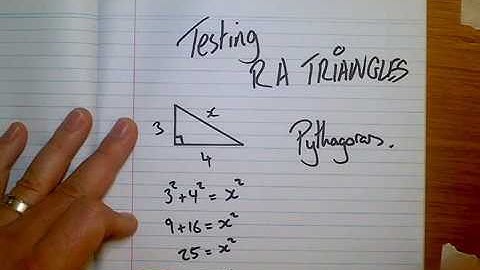 Testing
RA TRIANGLES
3
x
4
Pythagoras.
3² + 4² = x²
9 + 16 = x²
25 = x²